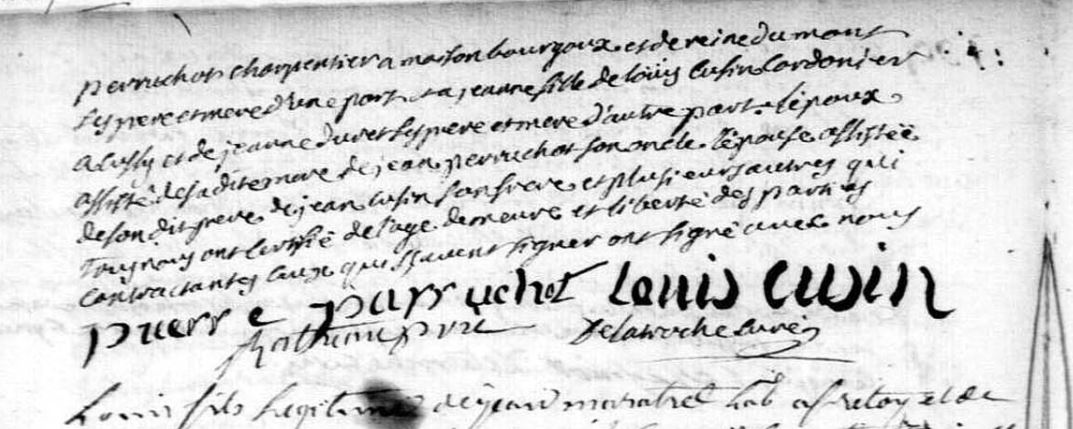 perruchot charpentier a maison bourgoux et de reine dumont
ses pere et mere d'une part, et a jeanne fille de loüis cusin Cordonier
a cussy et de jeanne duret ses pere et mere d'autre part. l'époux
assisté de sa dite mere de jean perruchot son oncle. l'épouse assistée
de son dit pere de jean cusin son frere et plusieurs autres qui
tous nous ont certifié de l'age demeure et liberté des parties
contractantes ceux qui sçavent signer ont signé avec nous
pierre parruchot Louis Cusin
Delaroche curé
Louis fils Legitime de jean